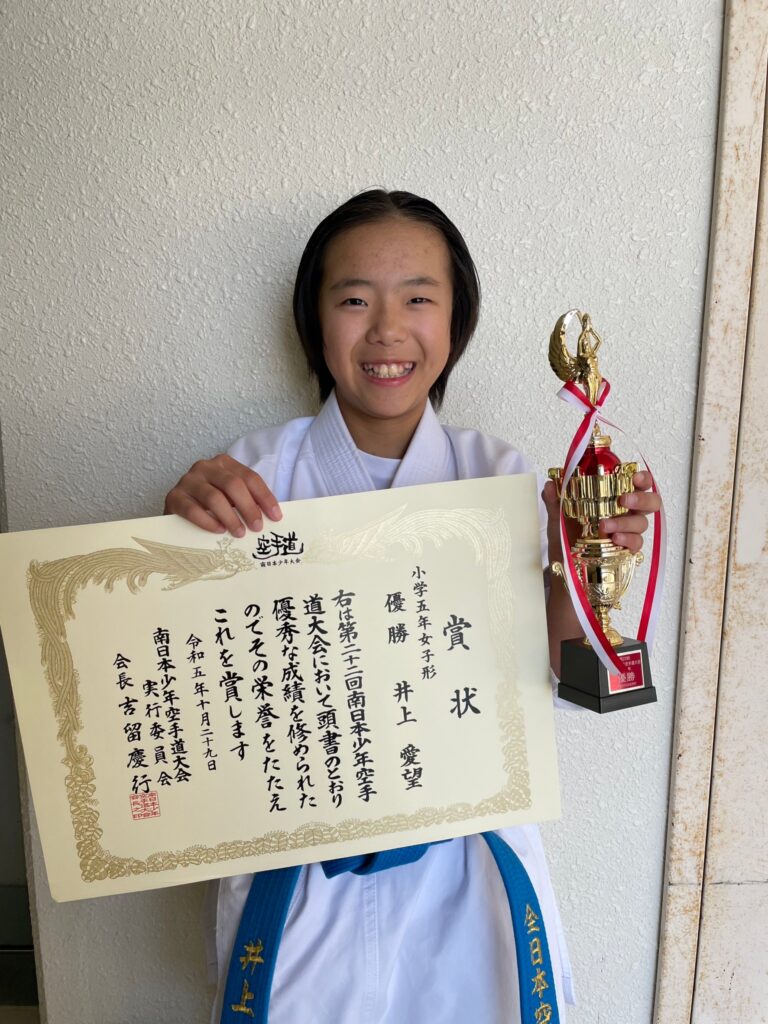 空手道
南日本少年大会
賞状
小学五年女子形
優勝 井上 愛望
右は第二十二回南日本少年空手
道大会において頭書のとおり
優秀な成績を修められた
のでその栄誉をたたえ
これを賞します
令和五年十月二十九日
南日本少年空手道大会
実行委員会
会長 吉留慶行
優勝
井上
全日本空